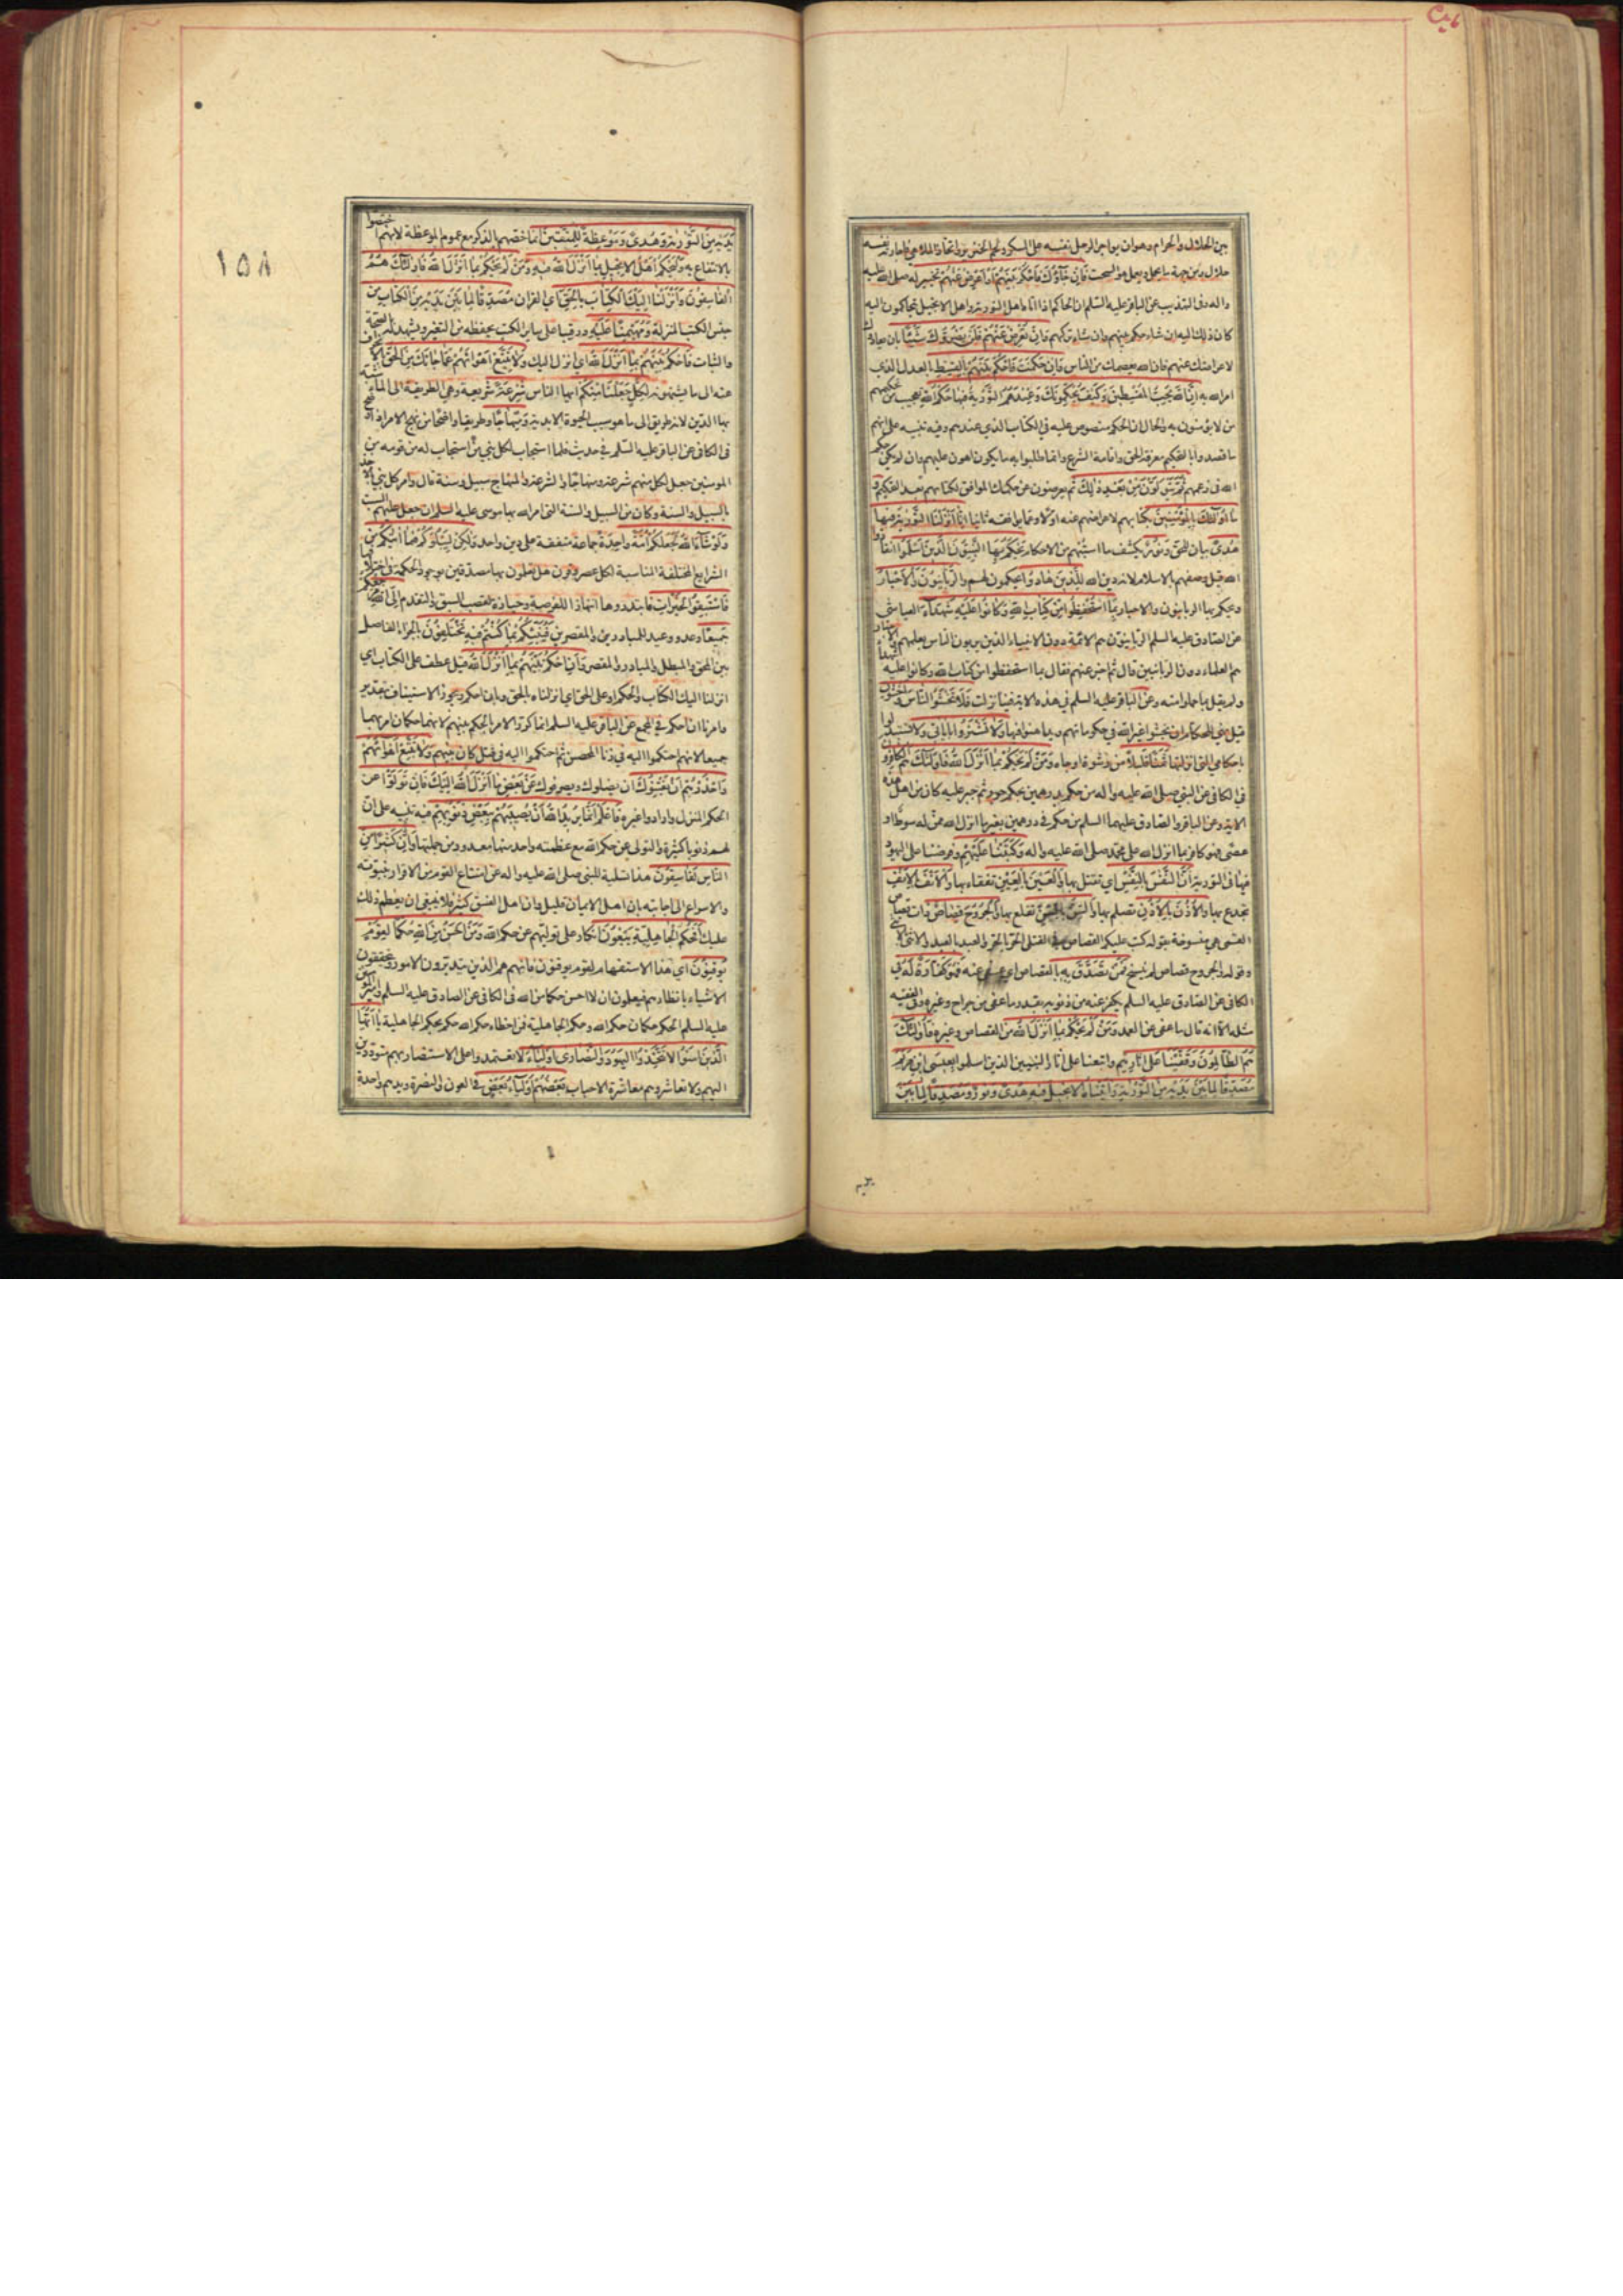 بين الحلال والحرام وهو ان يواجر الرجل نفسه على المسكر ولحم الخنزير واتخاذ الملاهي فاجارة نفسه
حلال ومن جهة ما يحمل ويعمل هو السحت فَاِنْ جَآؤُكَ فَاحْكُمْ بَيْنَهُمْ اَوْ اَعْرِضْ عَنْهُمْ تخيير له صلى الله عليه
واله وفي التهذيب عن الباقر عليه السلم ان الحاكم اذا اتاه اهل التورية واهل الانجيل يتحاكمون اليه
كان ذلك اليه ان شاء حكم بينهم وان شاء تركهم وَاِنْ تُعْرِضْ عَنْهُمْ فَلَنْ يَضُرُّوكَ شَيْئًا بان يعادوك
لاعراضك عنهم فان الله يعصمك من الناس وَاِنْ حَكَمْتَ فَاحْكُمْ بَيْنَهُمْ بِالْقِسْطِ بالعدل الذي
امر الله به اِنَّ اللهَ يُحِبُّ الْمُقْسِطينَ وَكَيْفَ يُحَكِّمُونَكَ وَعِنْدَهُمُ التَّوْرٰيةُ فيهَا حُكْمُ اللهِ تعجيب من تحكيمهم
من لا يؤمنون به والحال ان الحكم منصوص عليه في الكتاب الذي عندهم وفيه تنبيه على انهم
ما قصدوا بالتحكيم معرفة الحق واقامة الشرع وانما طلبوا به ما يكون اهون عليهم وان لم يكن حكم
الله في زعمهم ثُمَّ يَتَوَلَّوْنَ مِنْ بَعْدِ ذٰلِكَ ثم يعرضون عن حكمك الموافق لكتابهم بعد التحكيم وَ
مَا اُولٰئِكَ بِالْمُؤْمِنينَ بكتابهم لاعراضهم عنه اولا وعما يوافقه ثانيا اِنَّا اَنْزَلْنَا التَّوْرٰيةَ فيهَا
هُدًى بيان للحق وَنُورٌ يكشف ما استبهم من الاحكام يَحْكُمُ بِهَا النَّبِيُّونَ الَّذينَ اَسْلَمُوا انقادوا
لله قيل وصفهم بالاسلام لانه دين الله لِلَّذينَ هَادُوا يحكمون لهم وَالرَّبَّانِيُّونَ وَالْاَحْبَارُ
ويحكم بها الربانيون والاحبار بِمَا اسْتُحْفِظُوا مِنْ كِتَابِ اللهِ وَكَانُوا عَلَيْهِ شُهَدَآءَ العياشي
عن الصادق عليه السلم الربانيون هم الائمة دون الانبياء الذين يربون الناس بعلمهم والاحبار
هم العلماء دون الربانيين قال ثم اخبر عنهم فقال بما استحفظوا من كتاب الله وكانوا عليه شهداء
ولم يقل بما حملوا منه وعن الباقر عليه السلم في هذه الاية فينا نزلت فَلَا تَخْشَوُا النَّاسَ وَاخْشَوْنِ
قيل نهي للحكام ان يخشوا غير الله في حكوماتهم ويداهنوا فيها وَلَا تَشْتَرُوا بِاٰيَاتي ولا تستبدلوا
باحكامي التي انزلتها ثَمَنًا قَليلًا من رشوة او جاه وَمَنْ لَمْ يَحْكُمْ بِمَا اَنْزَلَ اللهُ فَاُولٰئِكَ هُمُ الْكَافِرُونَ
في الكافي عن النبي صلى الله عليه واله من حكم بدرهمين بحكم جور ثم جبر عليه كان من اهل هذه
الاية وعن الباقر والصادق عليهما السلم من حكم في درهمين بغير ما انزل الله ممن له سوط او
عصى فهو كافر بما انزل الله على محمد صلى الله عليه واله وَكَتَبْنَا عَلَيْهِمْ وفرضنا على اليهود
فيها في التورية اَنَّ النَّفْسَ بِالنَّفْسِ اي تقتل بها وَالْعَيْنَ بِالْعَيْنِ تفقاء بها وَالْاَنْفَ بِالْاَنْفِ
تجدع بها وَالْاُذُنَ بِالْاُذُنِ تصلم بها وَالسِّنَّ بِالسِّنِّ تقلع بها وَالْجُرُوحَ قِصَاصٌ ذات قصاص
القمي هي منسوخة بقوله كتب عليكم القصاص في القتلى الحر بالحر والعبد بالعبد والانثى بالانثى
وقوله والجروح قصاص لم ينسخ فَمَنْ تَصَدَّقَ بِهِ بالقصاص اي عفى عنه فَهُوَ كَفَّارَةٌ لَهُ في
الكافي عن الصادق عليه السلم يكفر عنه من ذنوبه بقدر ما عفى من جراح وغيره وفي الفقيه
مثله الا انه قال ما عفى عن العمد وَمَنْ لَمْ يَحْكُمْ بِمَا اَنْزَلَ اللهُ من القصاص وغيره فَاُولٰئِكَ
هُمُ الظَّالِمُونَ وَقَفَّيْنَا عَلٰى اٰثَارِهِمْ واتبعنا على اثار النبيين الذين اسلموا بِعيسَى ابْنِ مَرْيَمَ
مُصَدِّقًا لِمَا بَيْنَ يَدَيْهِ مِنَ التَّوْرٰيةِ وَاٰتَيْنَاهُ الْاِنْجيلَ فيهِ هُدًى وَنُورٌ وَمُصَدِّقًا لِمَا بَيْنَ
١٥٨
يَدَيْهِ مِنَ التَّوْرٰيةِ وَهُدًى وَمَوْعِظَةً لِلْمُتَّقينَ انما خصهم بالذكر مع عموم الموعظة لانهم اختصوا
بالانتفاع به وَلْيَحْكُمْ اَهْلُ الْاِنْجيلِ بِمَا اَنْزَلَ اللهُ فيهِ وَمَنْ لَمْ يَحْكُمْ بِمَا اَنْزَلَ اللهُ فَاُولٰئِكَ هُمُ
الْفَاسِقُونَ وَاَنْزَلْنَا اِلَيْكَ الْكِتَابَ بِالْحَقِّ اي القران مُصَدِّقًا لِمَا بَيْنَ يَدَيْهِ مِنَ الْكِتَابِ من
جنس الكتب المنزلة وَمُهَيْمِنًا عَلَيْهِ ورقيبا على ساير الكتب يحفظه من التغير ويشهد له بالصحة
والثبات فَاحْكُمْ بَيْنَهُمْ بِمَا اَنْزَلَ اللهُ اي انزل اليك وَلَا تَتَّبِعْ اَهْوَائَهُمْ عَمَّا جَاءَكَ مِنَ الْحَقِّ بالانحراف
عنه الى ما يشتهونه لِكُلٍّ جَعَلْنَا مِنْكُمْ ايها الناس شِرْعَةً شريعة وهي الطريقة الى الماء شبه
بها الدين لانه طريق الى ما هو سبب الحيوة الابدية وَمِنْهَاجًا وطريقا واضحا من نهج الامر اذا وضح
في الكافي عن الباقر عليه السلم في حديث فلما استجاب لكل نبي من استجاب له من قومه من
المؤمنين جعل لكل منهم شرعة ومنهاجا والشرعة والمنهاج سبيل وسنة قال وامر كل نبي بالاخذ
بالسبيل والسنة وكان من السبيل والسنة التي امر الله بها موسى عليه السلم ان جعل عليهم السبت
وَلَوْ شَآءَ اللهُ لَجَعَلَكُمْ اُمَّةً وَاحِدَةً جماعة متفقة على دين واحد وَلٰكِنْ لِيَبْلُوَكُمْ فيمَا اٰتٰيكُمْ من
الشرايع المختلفة المناسبة لكل عصر وقرن هل تعملون بها مصدقين بوجود الحكمة في اختلافها
فَاسْتَبِقُوا الْخَيْرَاتِ فابتدروها انتهازا للفرصة وحيازة لقصب السبق والتقدم اِلَى اللهِ مَرْجِعُكُمْ
جَميعًا وعد ووعيد للمبادرين والمقصرين فَيُنَبِّئُكُمْ بِمَا كُنْتُمْ فيهِ تَخْتَلِفُونَ بالجزاء الفاصل
بين المحق والمبطل والمبادر والمقصر وَاَنِ احْكُمْ بَيْنَهُمْ بِمَا اَنْزَلَ اللهُ قيل عطف على الكتاب اي
انزلنا اليك الكتاب والحكم او على الحق اي انزلناه بالحق وبان احكم ويجوز الاستيناف بتقدير
وامرنا ان احكم في المجمع عن الباقر عليه السلم انما كرر الامر بالحكم بينهم لانهما حكمان امر بهما
جميعا لانهم احتكموا اليه في زنا المحصن ثم احتكموا اليه في قتل كان بينهم وَلَا تَتَّبِعْ اَهْوَائَهُمْ
وَاحْذَرْهُمْ اَنْ يَفْتِنُوكَ ان يضلوك ويصرفوك عَنْ بَعْضِ مَا اَنْزَلَ اللهُ اِلَيْكَ فَاِنْ تَوَلَّوْا عن
الحكم المنزل وارادوا غيره فَاعْلَمْ اَنَّمَا يُريدُ اللهُ اَنْ يُصيبَهُمْ بِبَعْضِ ذُنُوبِهِمْ فيه تنبيه على ان
لهم ذنوبا كثيرة والتولي عن حكم الله مع عظمته واحد منها معدود من جملتها وَاِنَّ كَثيرًا مِنَ
النَّاسِ لَفَاسِقُونَ هذا تسلية للنبي صلى الله عليه واله عن امتناع القوم من الاقرار بنبوته
والاسراع الى اجابته بان اهل الايمان قليل وان اهل الفسق كثير فلا ينبغي ان يعظم ذلك
عليك اَفَحُكْمَ الْجَاهِلِيَّةِ يَبْغُونَ انكار على توليهم عن حكم الله وَمَنْ اَحْسَنُ مِنَ اللهِ حُكْمًا لِقَوْمٍ
يُوقِنُونَ اي هذا الاستفهام لقوم يوقنون فانهم هم الذين يتدبرون الامور ويتحققون
الاشياء بانظارهم فيعلمون ان لا احسن حكما من الله في الكافي عن الصادق عليه السلم عن امير المؤمنين
عليه السلم الحكم حكمان حكم الله وحكم الجاهلية فمن اخطاء حكم الله حكم بحكم الجاهلية يَا اَيُّهَا
الَّذينَ اٰمَنُوا لَا تَتَّخِذُوا الْيَهُودَ وَالنَّصَارٰى اَوْلِيَاءَ لا تعتمدوا على الاستنصار بهم متوددين
اليهم ولا تعاشروهم معاشرة الاحباب بَعْضُهُمْ اَوْلِيَاءُ بَعْضٍ في العون والنصرة ويدهم واحدة